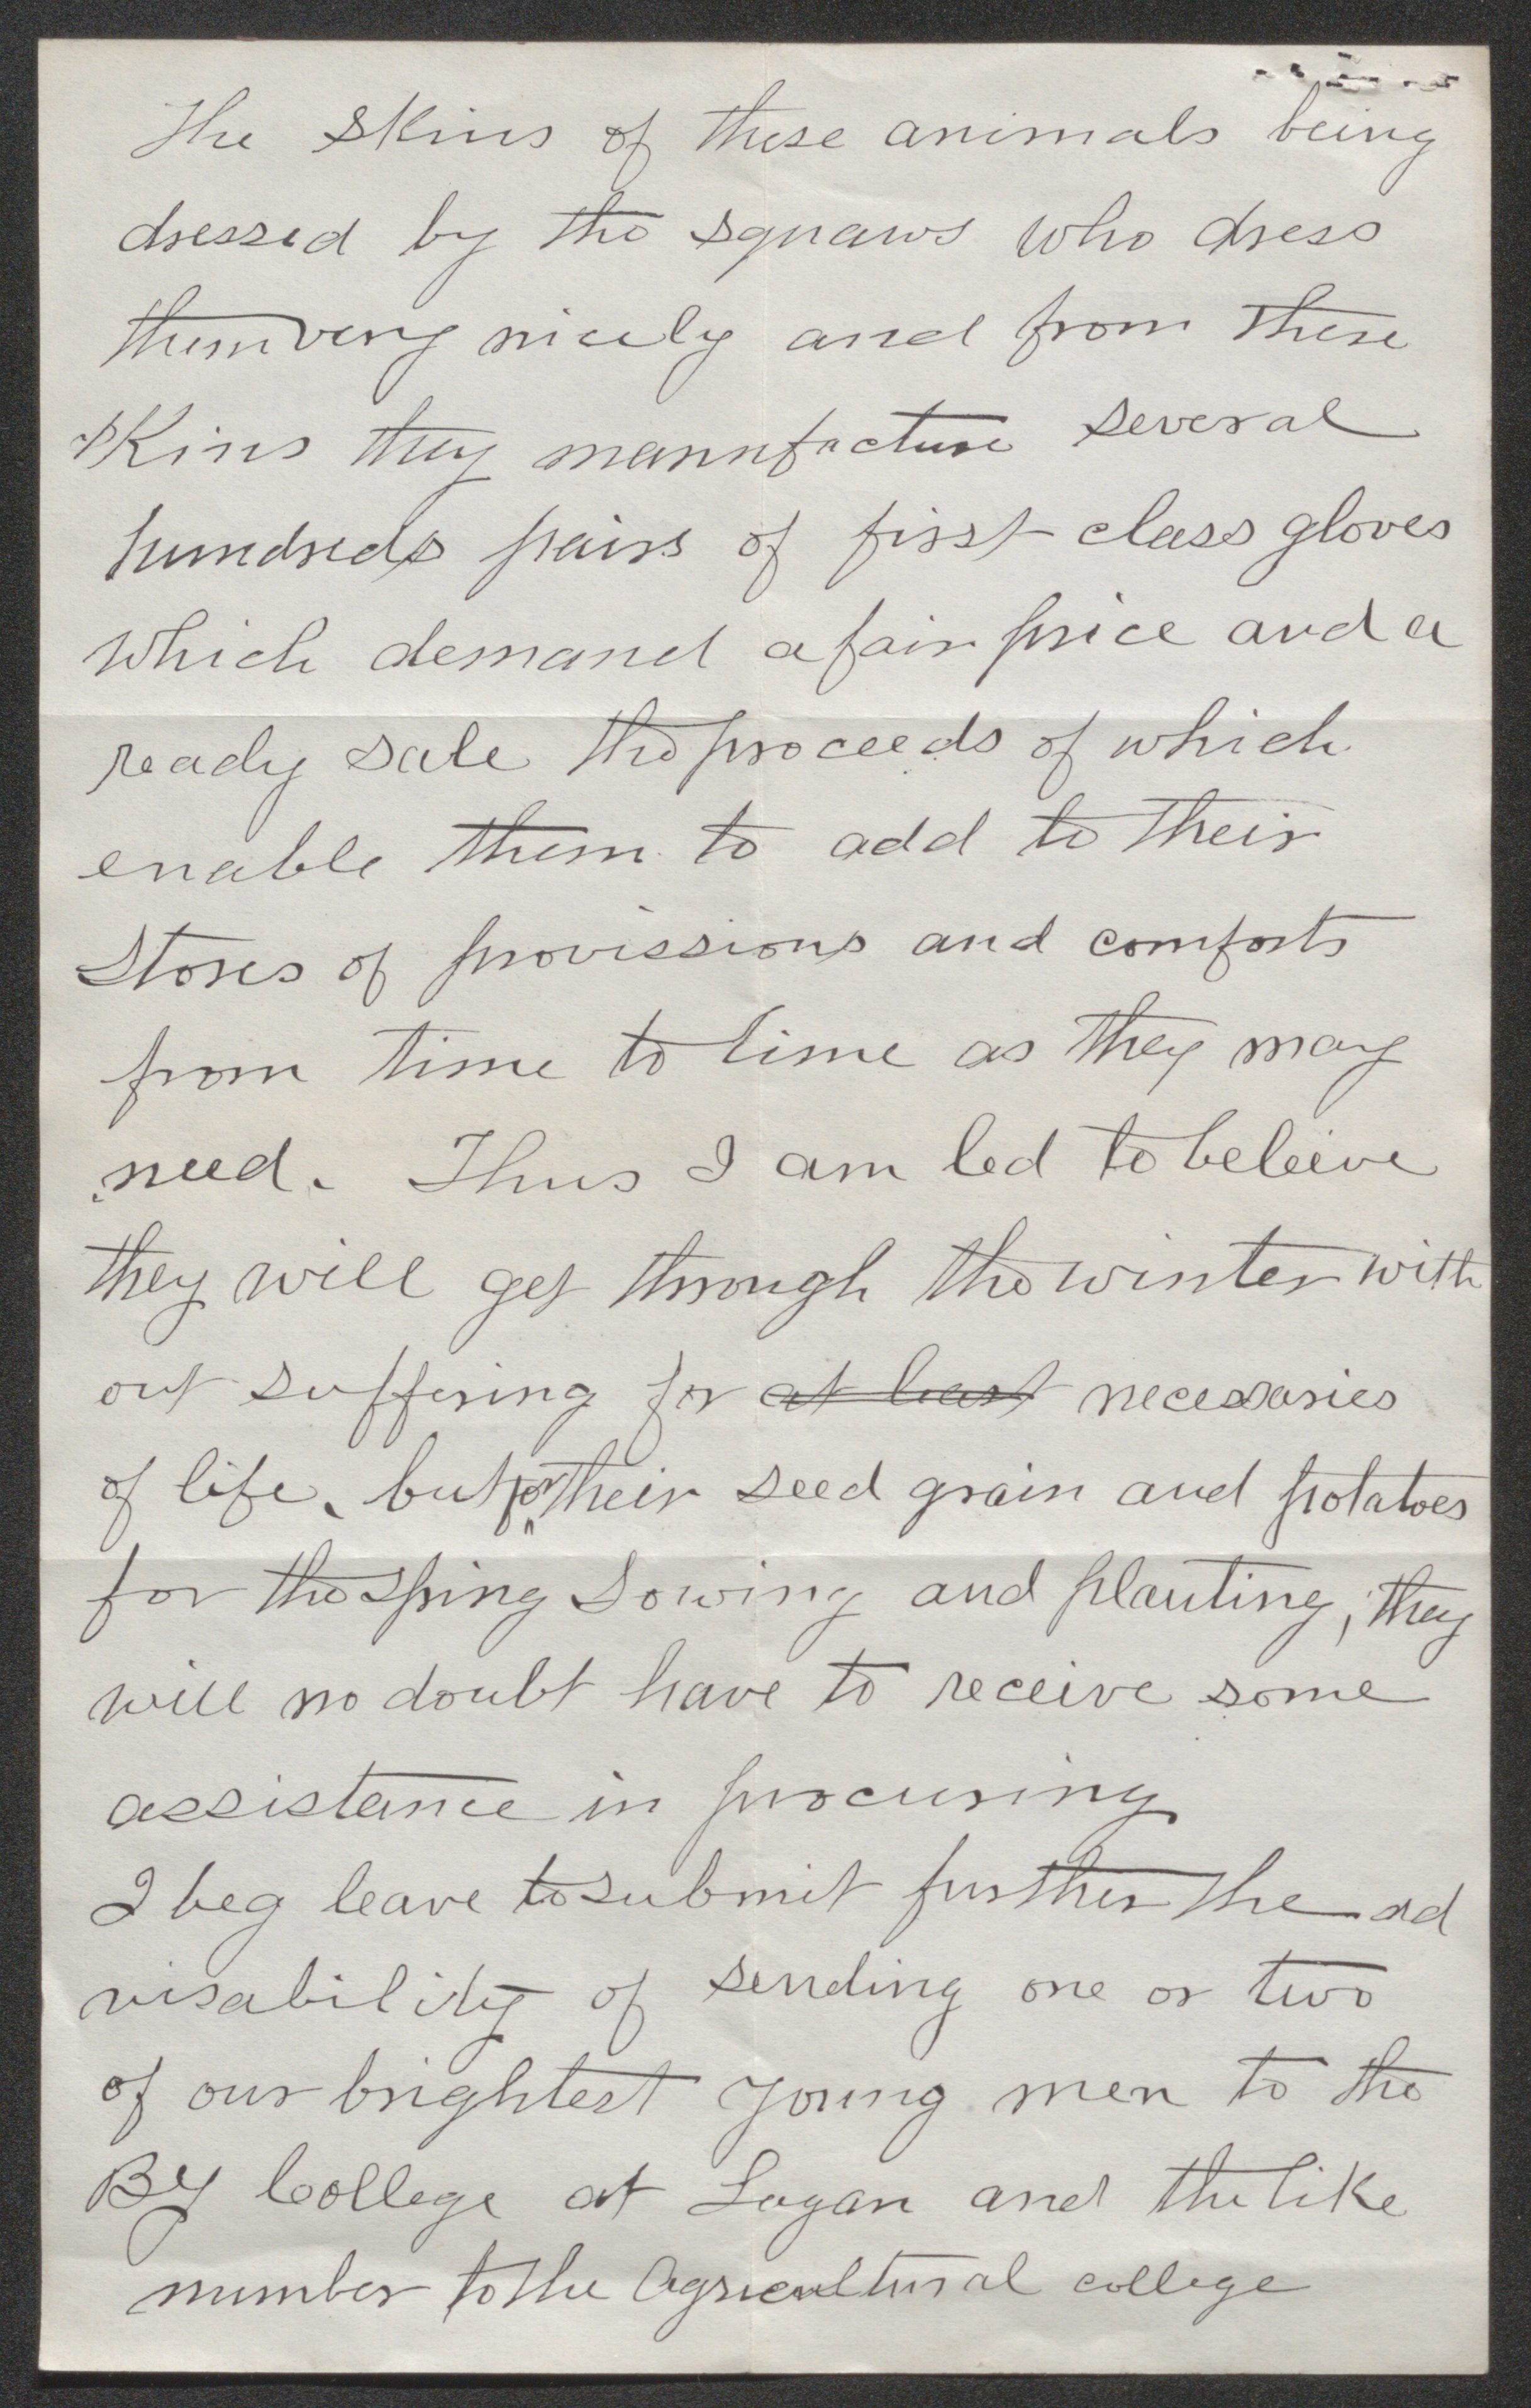 The skins of these animals being
dressed by the squaws who dress
them very nicely and from these
skins they mannufacture several
hundreds pairs of first class gloves
which demand a fair price and a
ready sale the proceeds of which
enable them to add to their
stores of provissions and comforts
from time to time as they may
need. Thus I am led to beleeive
they will get through the winter with
out suffering for at least necessaries
of life, but for their seed grain and potatoes
for the Sping Sowing and planting, they
will no doubt have to receive some
assistance in procuring
I beg leave to submit further the ad
visability of sending one or two
of our brightest young men to the
BY College at Logan and the like
number to the Agricultural college